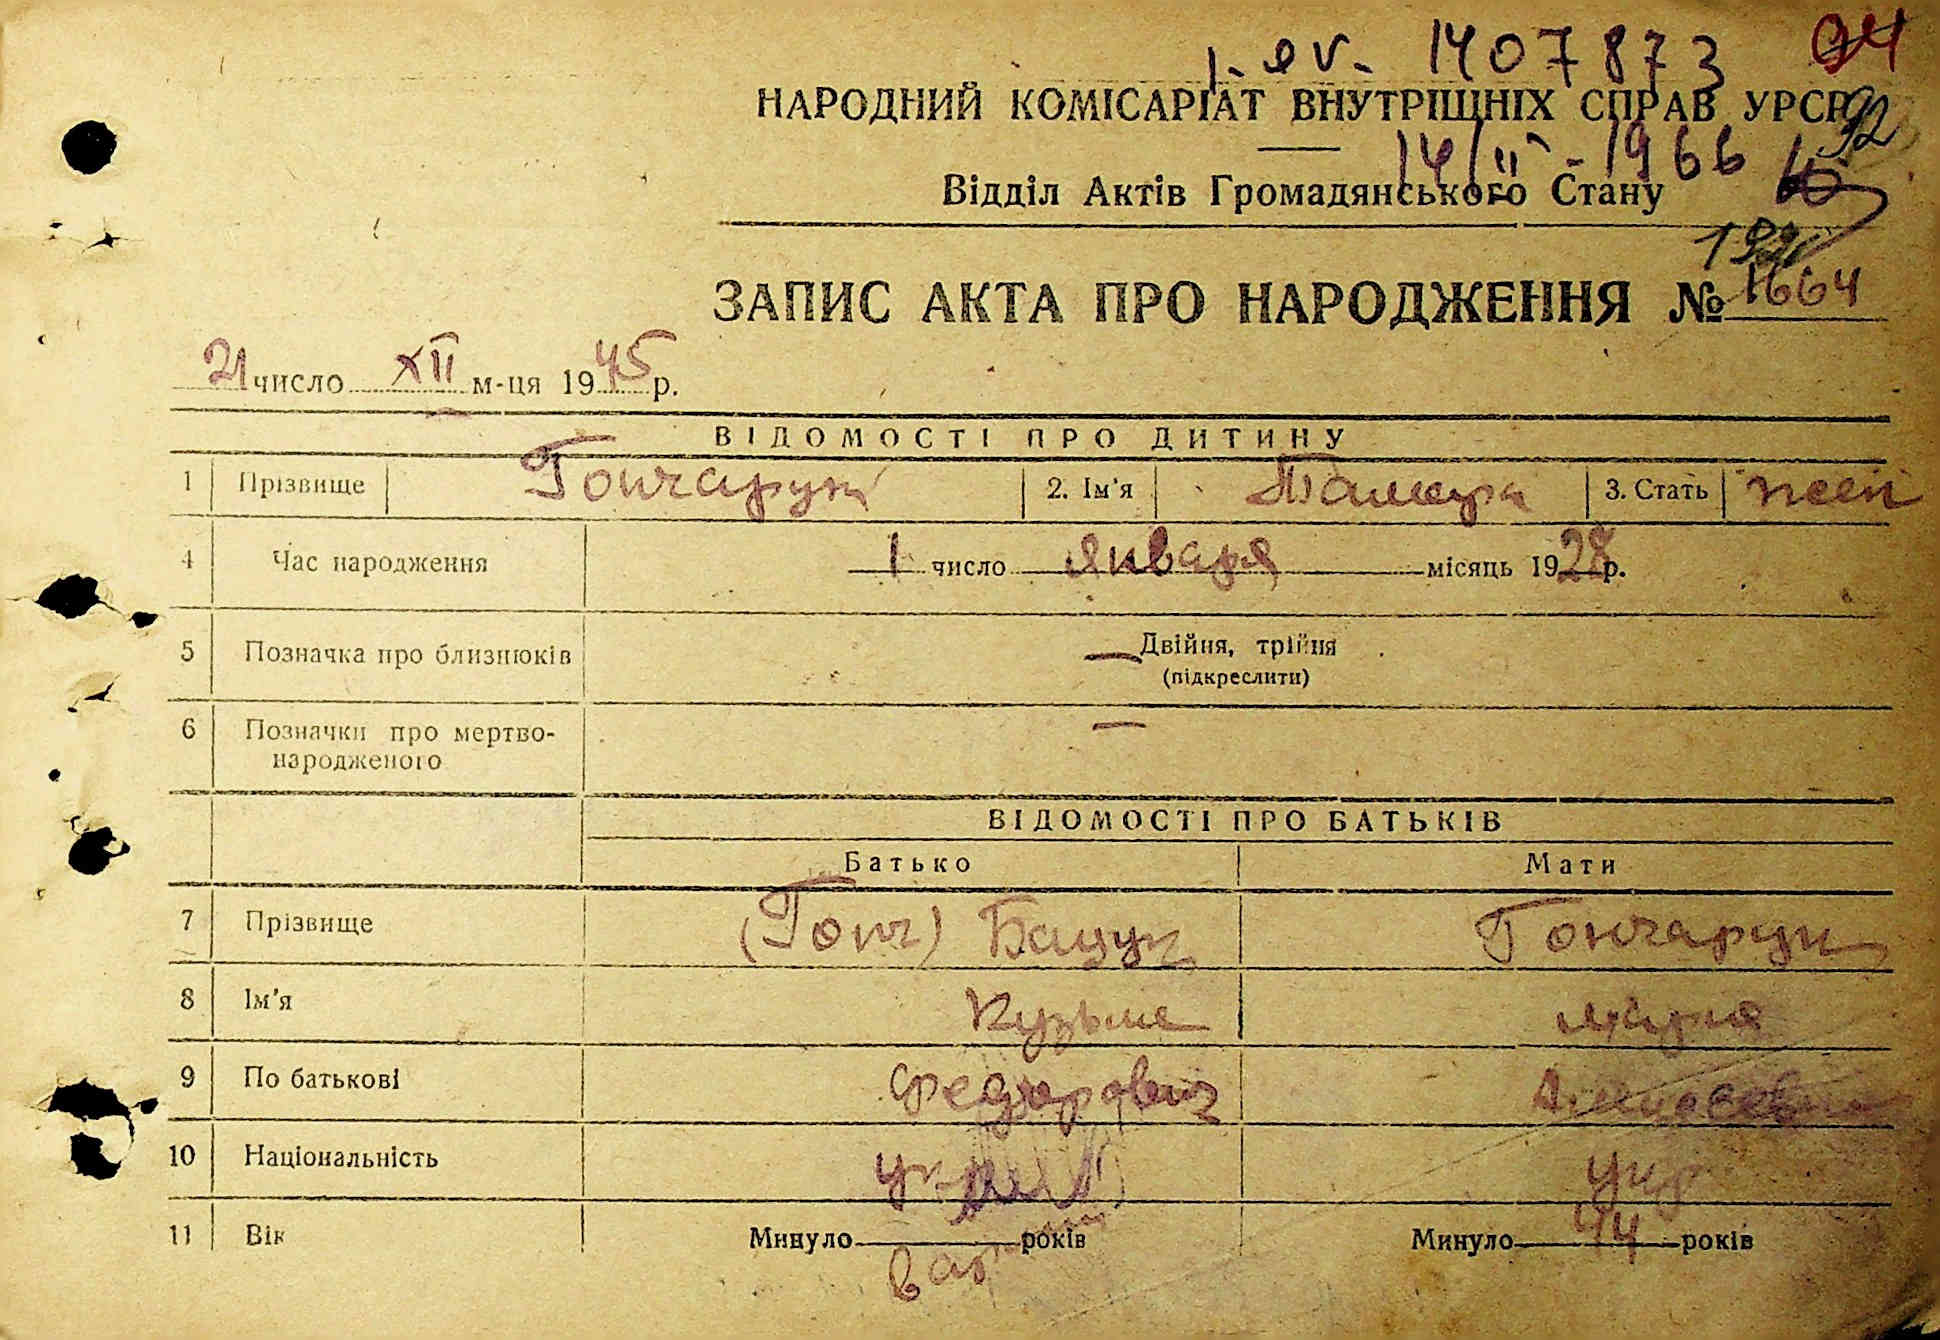 I-ЯV- 1407873 94
НАРОДНИЙ КОМІСАРІАТ ВНУТРІШНІХ СПРАВ УРСР 92
14/II - 1966
Відділ Актів Громадянського Стану
ЗАПИС АКТА ПРО НАРОДЖЕННЯ № 1664
21 число XII м-ця 1945 р.
ВІДОМОСТІ ПРО ДИТИНУ
1 Прізвище Гончарук 2. Ім'я Тамара 3. Стать жен
4 Час народження 1 число января місяць 1928 р.
5 Позначка про близнюків — Двійня, трійня
(підкреслити)
6 Позначки про мертво-
народженого —
ВІДОМОСТІ ПРО БАТЬКІВ
Батько Мати
7 Прізвище (Гонч) Бацук Гончарук
8 Ім'я Кузьма Мария
9 По батькові Федорович
10 Національність укр укр
11 Вік Минуло років Минуло 44 років